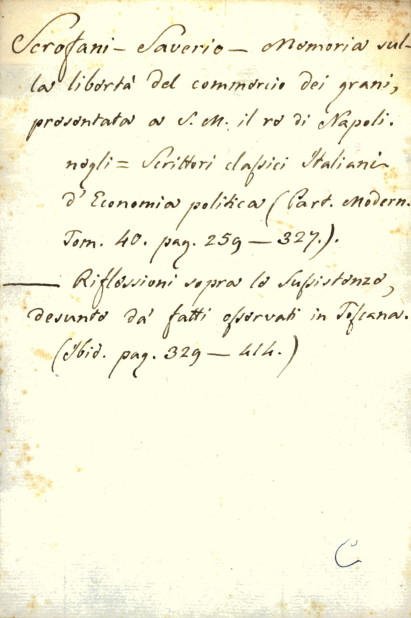 Scrofani – Saverio – Memoria sul-
la libertà del commercio dei grani,
presentata a S. M. il re di Napoli.
negli = Scrittori classici Italiani
d' Economia politica (Part. Modern.
Tom. 40. pag. 259 – 327.).
—— Riflessioni sopra le sussistenze,
desunte da' fatti osservati in Toscana.
(Ibid. pag. 329 – 414.)
C